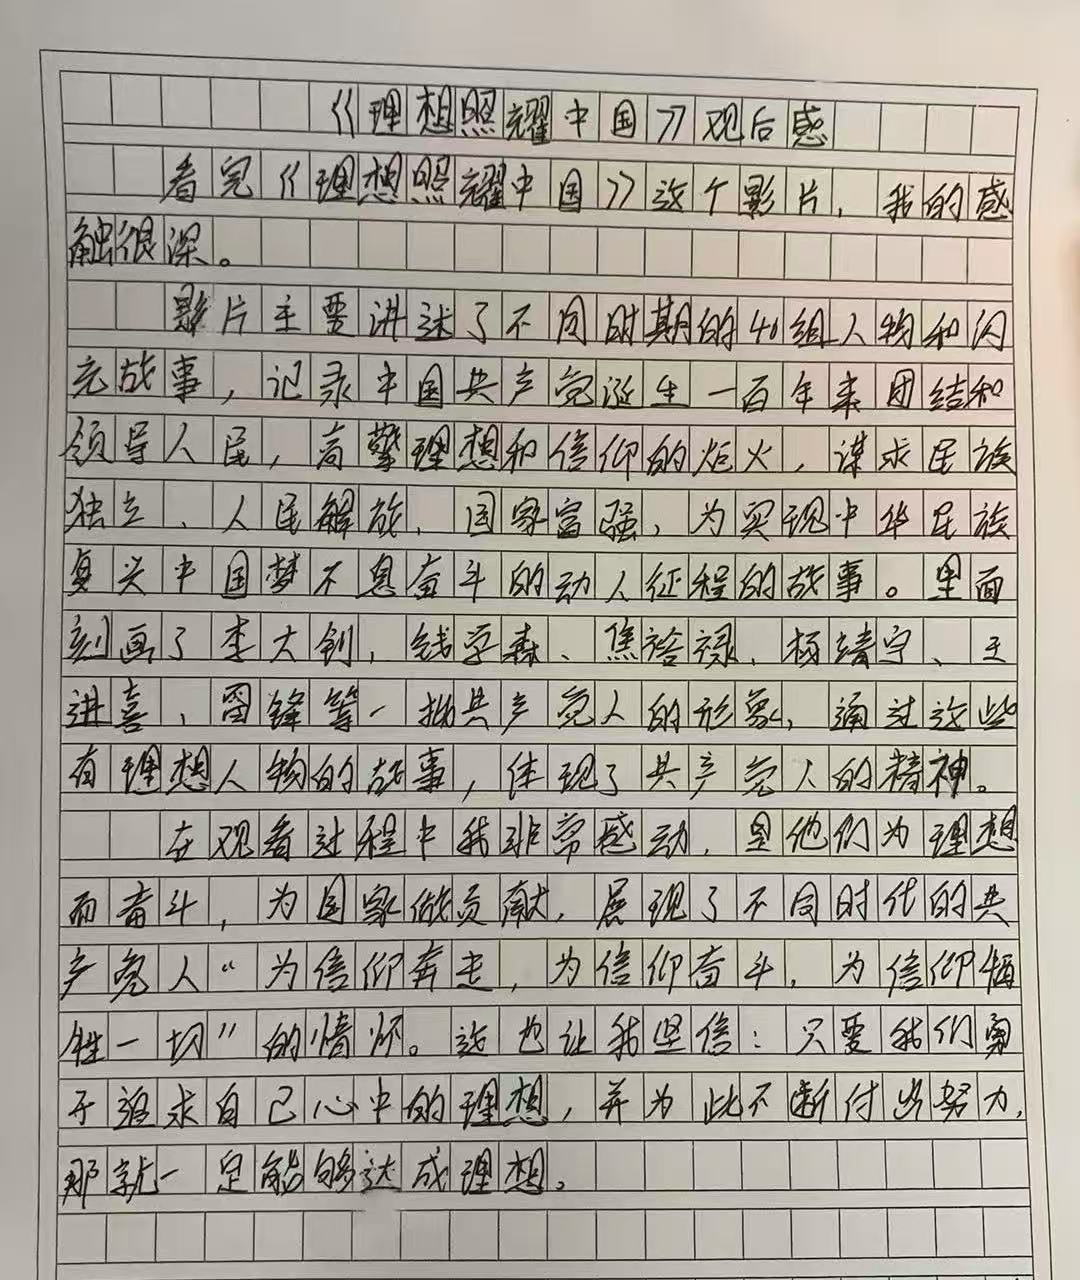 《理想照耀中国》观后感
看完《理想照耀中国》这个影片，我的感
触很深。
影片主要讲述了不同时期的40组人物和闪
光故事，记录中国共产党诞生一百年来团结和
领导人民，高擎理想和信仰的炬火，谋求民族
独立、人民解放、国家富强，为实现中华民族
复兴中国梦不息奋斗的动人征程的故事。里面
刻画了李大钊，钱学森、焦裕禄、杨靖宇、王
进喜、雷锋等一批共产党人的形象，通过这些
有理想人物的故事，体现了共产党人的精神。
在观看过程中我非常感动，是他们为理想
而奋斗，为国家做贡献，展现了不同时代的共
产党人“为信仰奔走，为信仰奋斗，为信仰牺
牲一切”的情怀。这也让我坚信：只要我们勇
于追求自己心中的理想，并为此不断付出努力，
那就一定能够达成理想。